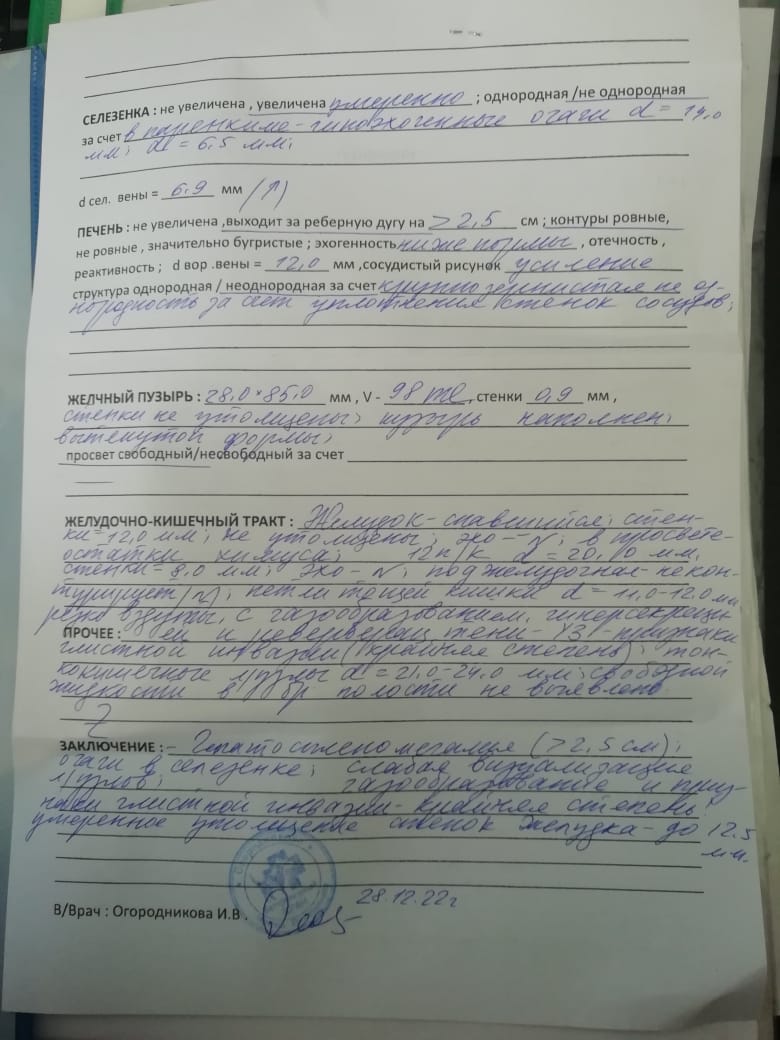 СЕЛЕЗЕНКА : не увеличена , увеличена умеренно ; однородная /не однородная
за счет в паренхиме - гипоэхогенные очаги d = 14,0
мм; d = 6,5 мм;
d сел. вены = 6,9 мм (↑)
ПЕЧЕНЬ : не увеличена ,выходит за реберную дугу на > 2,5 см ; контуры ровные,
не ровные , значительно бугристые ; эхогенность ниже нормы , отечность ,
реактивность ; d вор .вены = 12,0 мм ,сосудистый рисунок усиление
структура однородная / неоднородная за счет крупнозернистая не од-
нородность за счет уплотнения стенок сосудов;
ЖЕЛЧНЫЙ ПУЗЫРЬ : 28,0 × 85,0 мм , V - 98 ml , стенки 0,9 мм ,
стенки не утолщены; пузырь наполнен;
вытянутой формы;
просвет свободный/несвободный за счет
ЖЕЛУДОЧНО-КИШЕЧНЫЙ ТРАКТ : Желудок - спавшийся; стен-
ки = 12,0 мм; не утолщены; эхо - N; в просвете
остатки химуса; 12п/к d = 20,10 мм,
стенки = 8,0 мм; эхо - N; поджелудочная - не кон-
турирует (N); петли тощей кишки d = 11,0-12,0 мм
резко вздуты, с газообразованием, гиперсекреци
ПРОЧЕЕ : ей и реверберац. тени - УЗ - признаки
глистной инвазии (крайняя степень); тон-
кокишечные л/узлы d = 21,0-24,0 мм; свободной
жидкости в бр полости не выявлено
ЗАКЛЮЧЕНИЕ : - Гепатоспленомегалия (> 2,5 см);
очаги в селезенке; слабая визуализация
л/узлов; газообразование и приз-
наки глистной инвазии - крайняя степень!
умеренное утолщение стенок желудка - до 12,5
мм.
В/Врач : Огородникова И.В . 28.12.22г